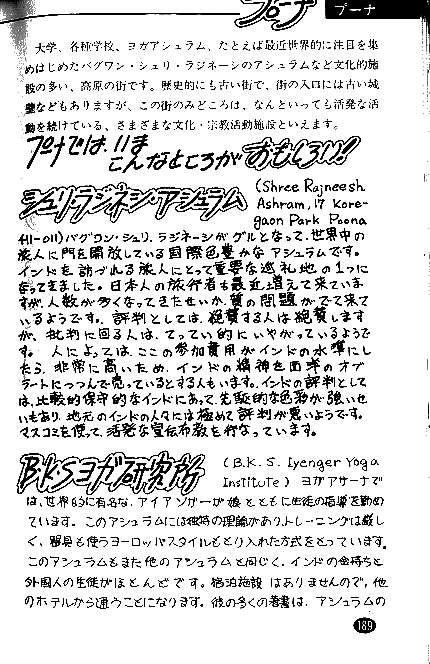 プーナ
プーナ
大学、各種学校、ヨガアシュラム、たとえば最近世界的に注目を集
めはじめたバグワン・シュリ・ラジネーシのアシュラムなど文化的施
設の多い、高原の街です。歴史的にも古い街で、街の入口には古い城
壁などもありますが、この街のみどころは、なんといっても活発な活
動を続けている、さまざまな文化・宗教活動施設といえます。
プーナでは、いま
こんなところが おもしろい!
シュリ・ラジネシ・アシュラム
(Shree Rajneesh
Ashram, 17 Kore-
gaon Park Poona
411-011) バグワン・シュリ・ラジネーシがグルとなって、世界中の
旅人に門を開放している国際色豊かなアシュラムです。
インドを訪づれる旅人にとって重要な巡礼地の1つに
なってきました。日本人の旅行者も最近増えて来ていま
すが、人数が多くなってきたせいか、質の問題がでて来て
いるようです。評判としては、絶賛する人は絶賛します
が、批判に回る人は、てってい的にいやがっているようで
す。人によっては、ここの参加費用がインドの水準にし
たら、非常に高いため、インドの精神を西洋のオブ
ラートにつつんで売っているとする人もいます。インドの評判として
は、比較的保守的なインドにあって、先駆的な色彩が強いせ
いもあり、地元のインドの人々には極めて評判が悪いようです。
マスコミを使って、活発な宣伝布教を行なっています。
B.K.Sヨガ研究所
(B.K.S. Iyenger Yoga
Institute) ヨガアサーナで
は、世界的に有名な、アイアンガーが娘とともに生徒の指導を勤め
ています。このアシュラムには独特の理論があり、トレーニングは厳し
く、器具も使うヨーロッパスタイルもとり入れた方式をとっています。
このアシュラムもまた他のアシュラムと同じく、インドの金持ちと
外国人の生徒がほとんどです。宿泊施設はありませんので、他
のホテルから通うことになります。彼の多くの著書は、アシュラムの
189